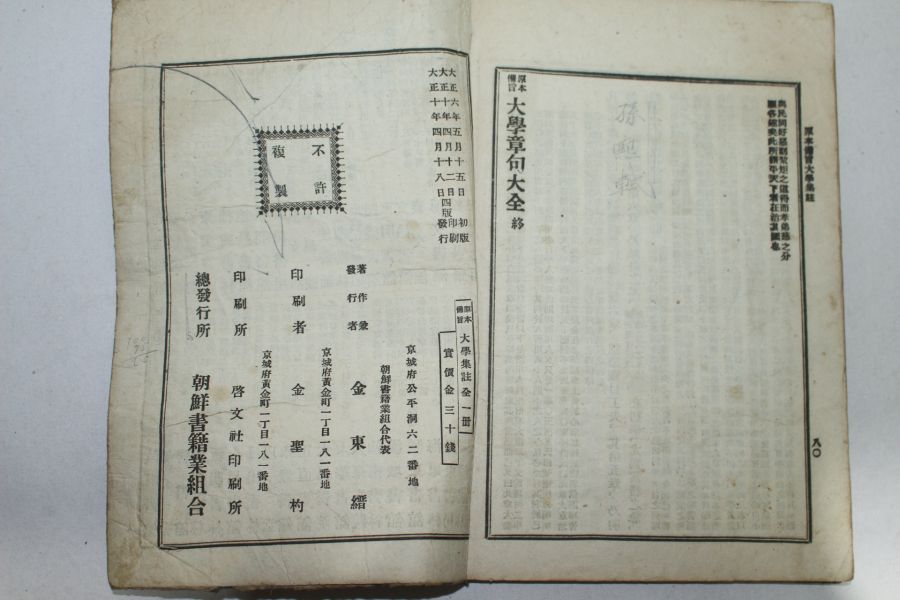 原本備旨大學集註
八〇
與民同好惡則絜矩之道得而孝弟慈之分
原本備旨
大學章句大全 終
大正六年五月十五日初版
大正十年四月十二日四版印刷
大正十年四月十八日發行
不許
複製
原本備旨 大學集註 全一冊
實價金三十錢
京城府公平洞六二番地
朝鮮書籍業組合代表
著作兼發行者 金東縉
京城府黃金町一丁目一八一番地
印刷者 金聖杓
京城府黃金町一丁目一八一番地
印刷所 啓文社印刷所
總發行所 朝鮮書籍業組合